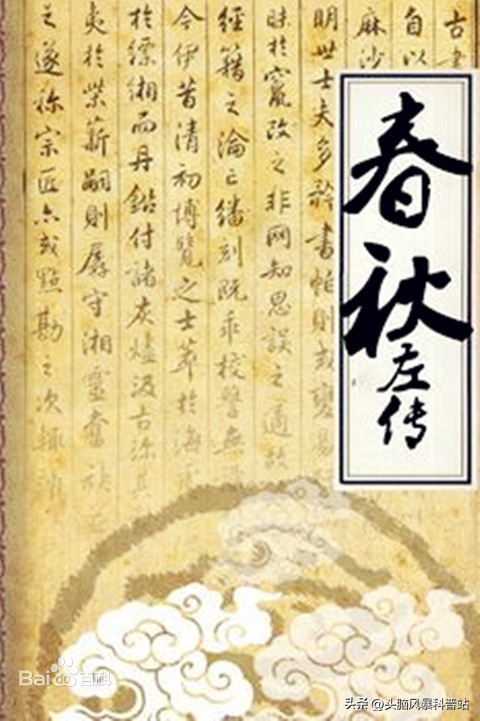 古書
自以
麻沙
明世士夫多矜書帕則或變易
昧於竄改之非网知思誤之適
經籍之淪亡繙刻既乖校讐無
今伊昔清初博覽之士萃於海
於縹緗而丹鉛付諸灰燼汲古
夷於柴薪嗣則孱守湘靈奮袂
之遂稱宗匠亦或點勘之次輒
春秋
左传
Bai百科
头条@头脑风暴科普站